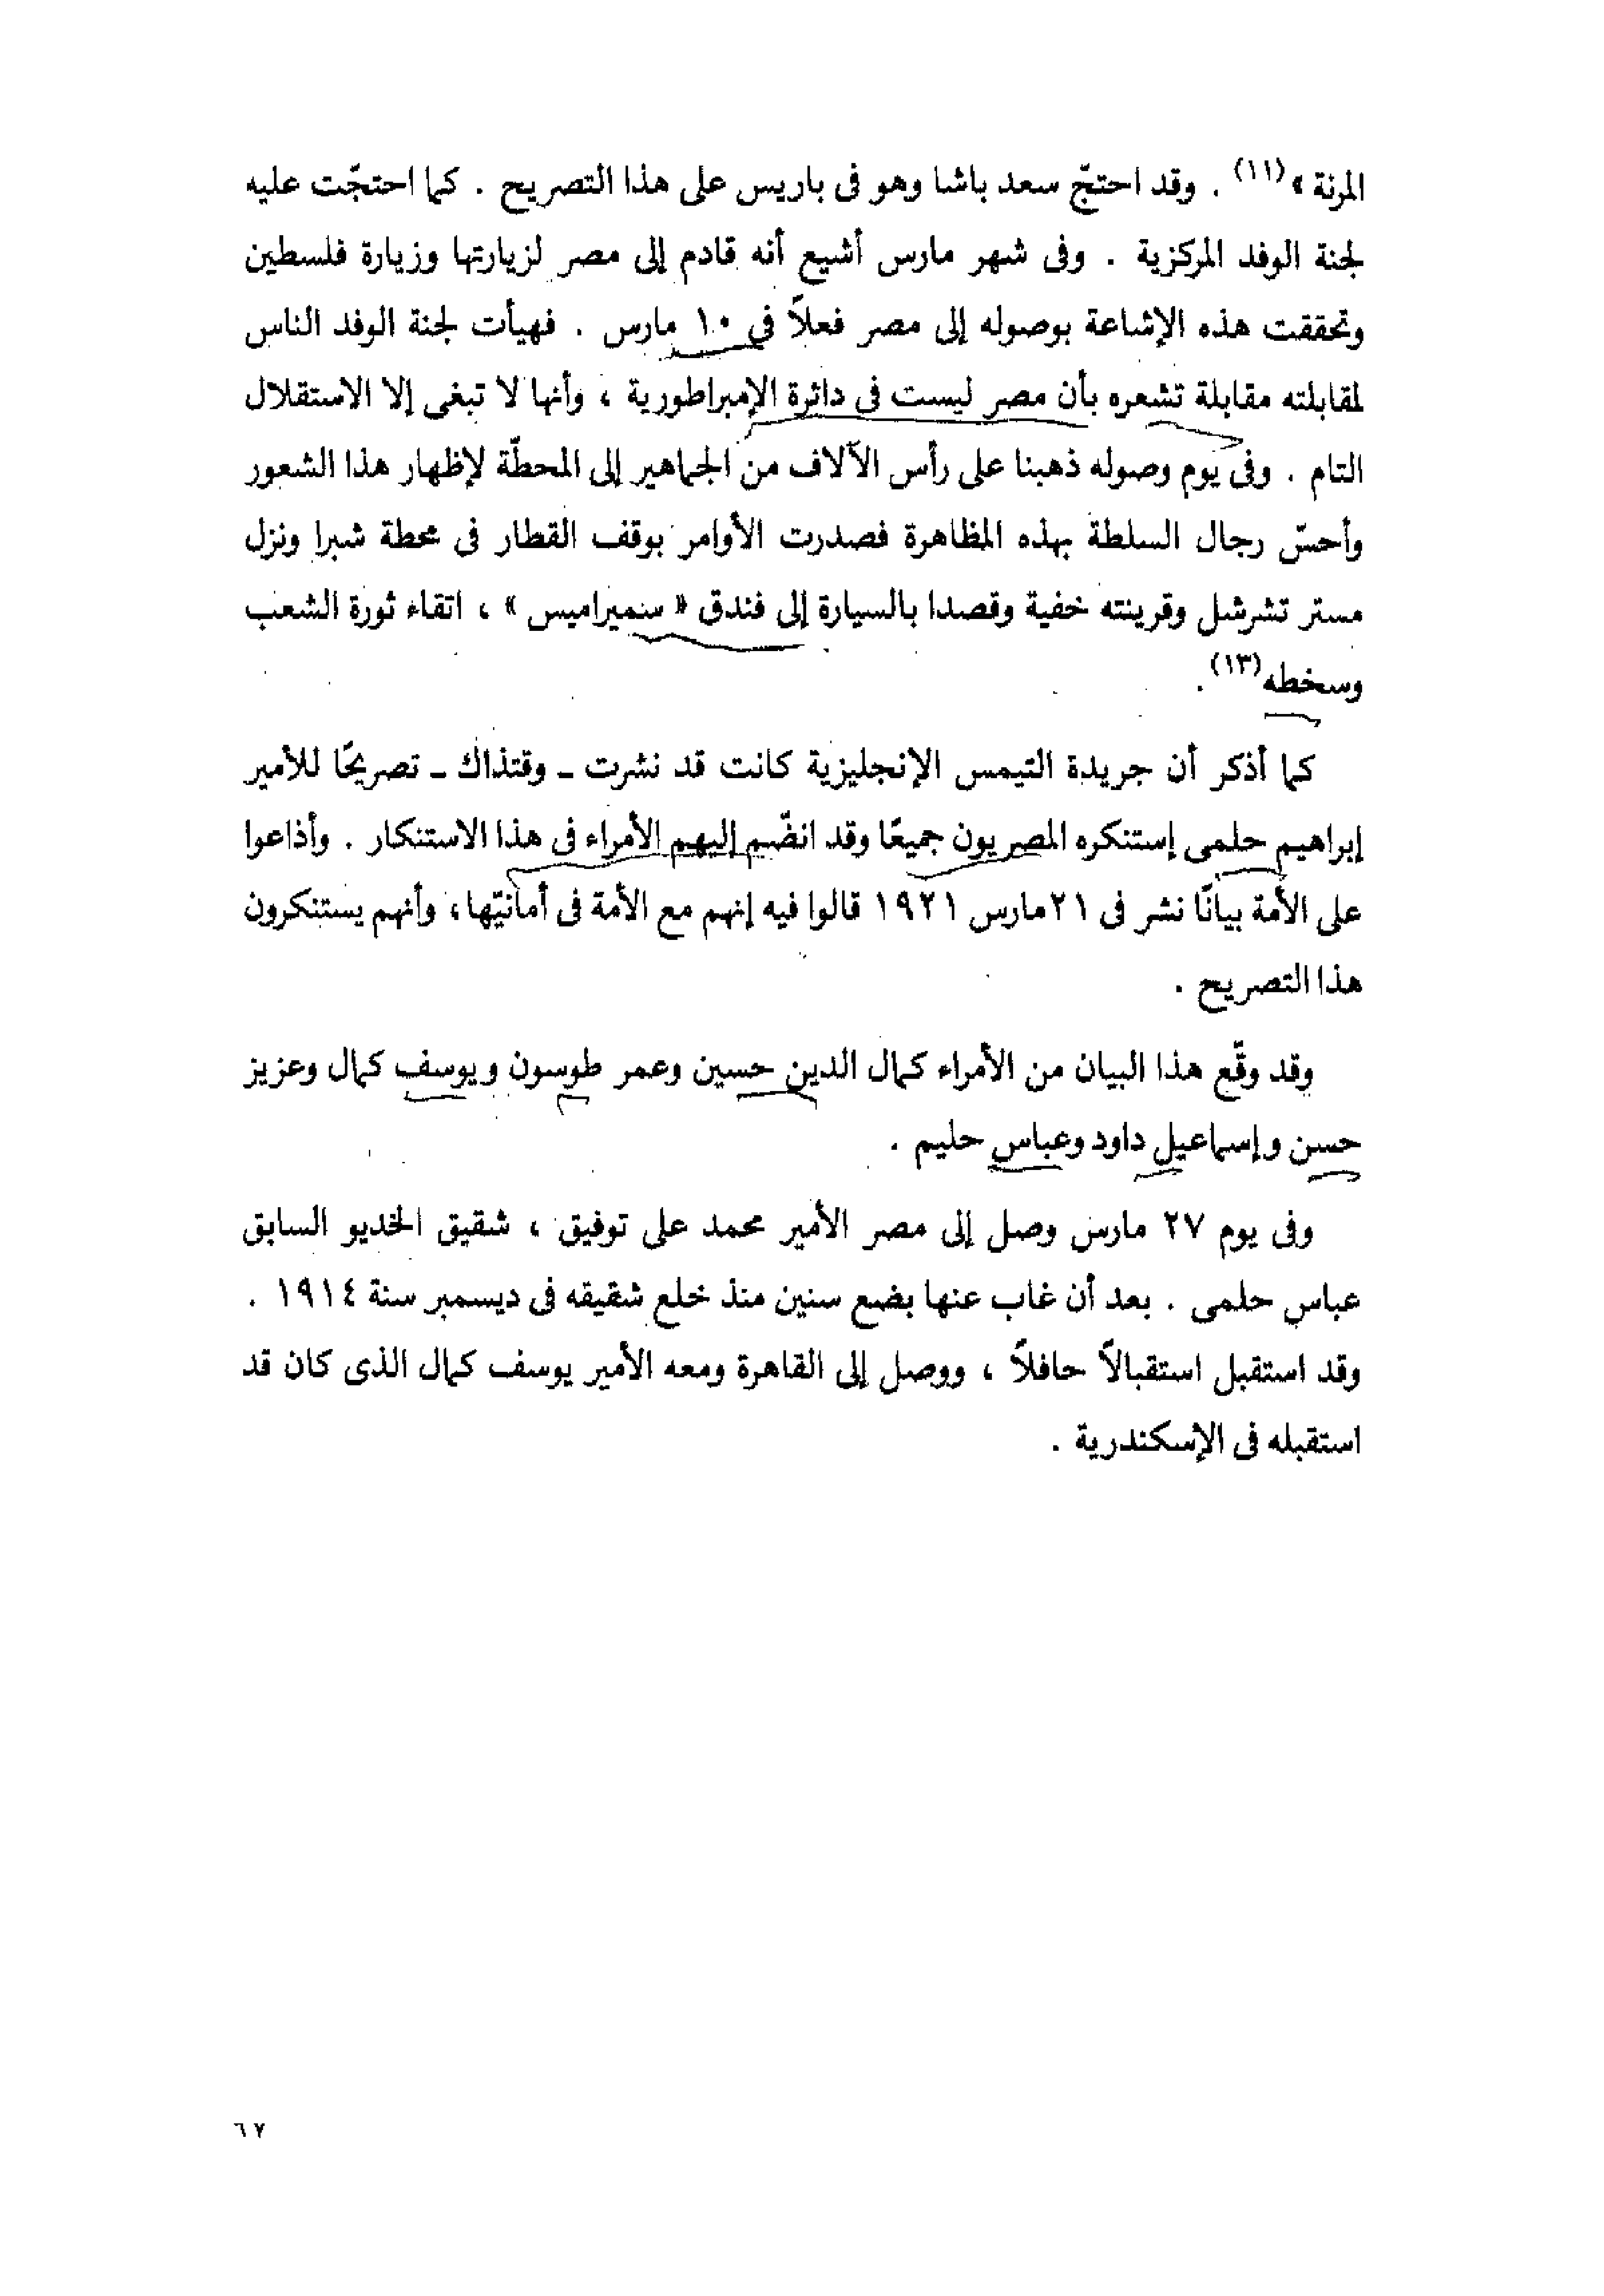 المرنة »(١١) . وقد احتجّ سعد باشا وهو فى باريس على هذا التصريح . كما احتجّت عليه
لجنة الوفد المركزية . وفى شهر مارس أشيع أنه قادم إلى مصر لزيارتها وزيارة فلسطين
وتحققت هذه الإشاعة بوصوله إلى مصر فعلاً فى ١٠ مارس . فهيأت لجنة الوفد الناس
لمقابلته مقابلة تشعره بأن مصر ليست فى دائرة الإمبراطورية ، وأنها لا تبغى إلا الاستقلال
التام . وفى يوم وصوله ذهبنا على رأس الآلاف من الجماهير إلى المحطّة لإظهار هذا الشعور
وأحسّ رجال السلطة بهذه المظاهرة فصدرت الأوامر بوقف القطار فى محطة شبرا ونزل
مستر تشرشل وقرينته خفية وقصدا بالسيارة إلى فندق « سنميراميس » ، اتقاء ثورة الشعب
وسخطه(١٣) .
كما أذكر أن جريدة التيمس الإنجليزية كانت قد نشرت ـ وقتذاك ـ تصريحًا للأمير
إبراهيم حلمى إستنكره المصريون جميعًا وقد انضّم إليهم الأمراء فى هذا الاستنكار . وأذاعوا
على الأمة بيانًا نشر فى ٢١مارس ١٩٢١ قالوا فيه إنهم مع الأمة فى أمانيّها ، وأنهم يستنكرون
هذا التصريح .
وقد وقّع هذا البيان من الأمراء كمال الدين حسين وعمر طوسون ويوسف كمال وعزيز
حسن وإسماعيل داود وعباس حليم .
وفى يوم ٢٧ مارس وصل إلى مصر الأمير محمد على توفيق ، شقيق الخديو السابق
عباس حلمى . بعد أن غاب عنها بضع سنين منذ خلع شقيقه فى ديسمبر سنة ١٩١٤ .
وقد استقبل استقبالاً حافلاً ، ووصل إلى القاهرة ومعه الأمير يوسف كمال الذى كان قد
استقبله فى الإسكندرية .
٦٧